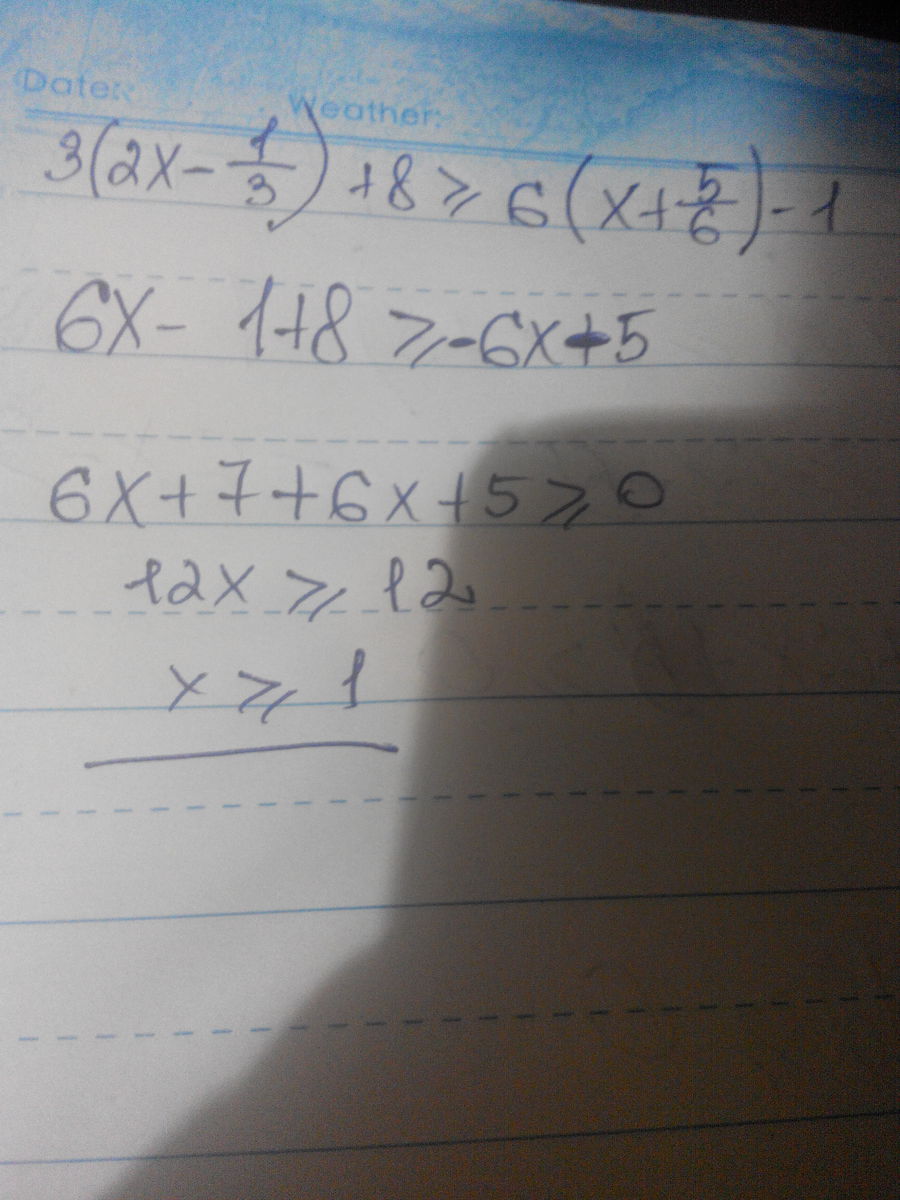 Date:
Weather:
3(2x-1/3)+8≥6(x+5/6)-1
6x-1+8≥-6x-5
6x+7+6x+5≥0
12x≥12
x≥1